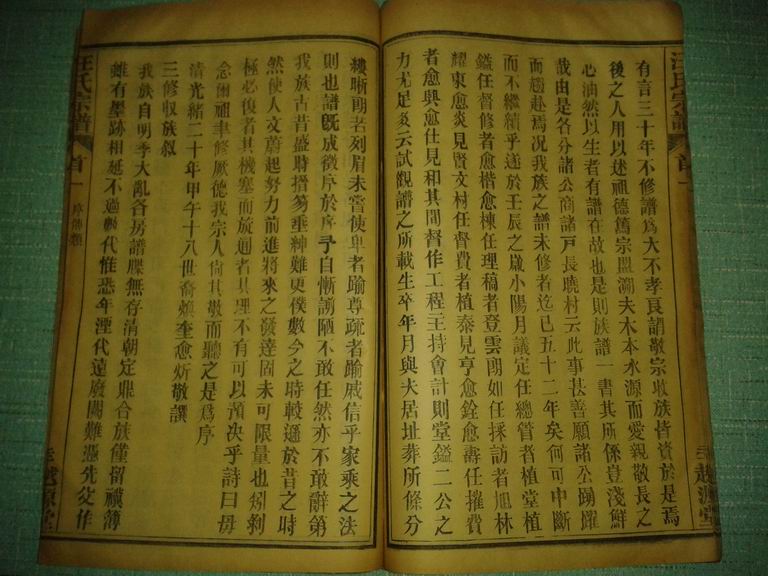 汪氏宗譜
首一
越源堂
有言三十年不修譜爲大不孝良誚敬宗收族皆資於是焉
後之人用以述祖德篤宗盟溯夫木本水源而愛親敬長之
心油然以生者有譜在故也是則族譜一書其所係豈淺鮮
哉由是各分諸公商諸戸長曉村云此事甚善願諸公踴躍
而趨赴焉况我族之譜未修者迄已五十二年矣何可中斷
而不繼續乎遂於壬辰之歲小陽月議定任總管者植堂植
鎰任督修者愈楷愈棟任理稿者登雲朗如任採訪者旭林
耀東愈炎見賢文材任督費者植泰見亨愈銓愈壽任摧費
者愈興愈仕見和其間督作工程主持會計則堂鎰二公之
力尤足多云試觀譜之所載生卒年月與夫居址葬所條分
縷晰朗若列眉未嘗使卑者踰尊疏者踰戚信乎家乘之法
則也譜既成徵序於予自慚謭陋不敢任然亦不敢辭第
我族古昔盛時搢笏垂紳難更僕數今之時較遜於昔之時
然使人文蔚起努力前進將來之發達固未可限量也矧剝
極必復者其機塞而旋通者其理不有可以預决乎詩曰毋
念爾祖聿修厥德我宗人尙其敬而聽之是爲序
清光緒二十年甲午十八世裔 奎愈炘敬譔
三修收族叙
我族自明季大亂各房譜牒無存清朝定鼎合族僅留 薄
雖有墨跡相延不過 代惟恐年湮代遠廢闕難慿先父作
汪氏宗譜
首一
序傳類
越源堂